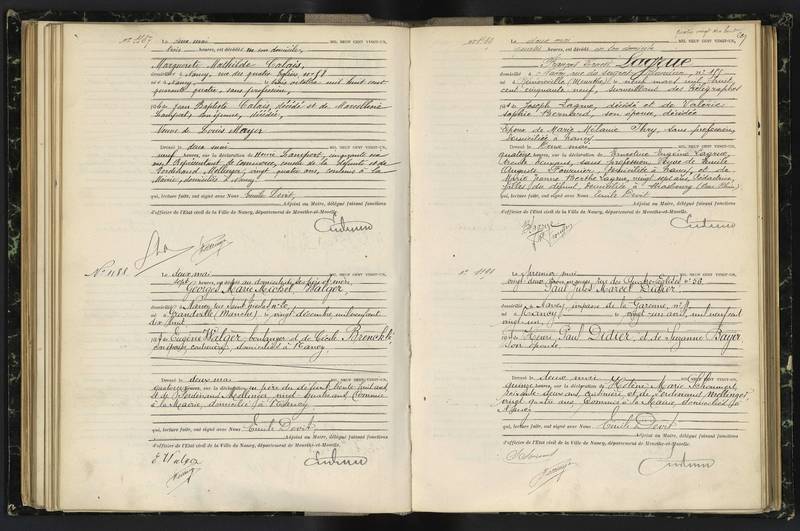 N° 1187
Le deux mai MIL NEUF CENT VINGT-UN,
heures, est décédée en son domicile,
Marguerite Mathilde Calais,
domiciliée à Nancy, rue des quatre Eglises n° 58
née à Nancy, le trois octobre mil huit cent
quarante quatre, sans profession,
fille de Jean Baptiste Calais, décédé et de Marcelline
son épouse, décédée,
Veuve de Louis Mayer
Dressé le deux mai MIL NEUF CENT VINGT-UN,
neuf heures, sur la déclaration de Henri cinquante
ans, Représentant de Commerce,
Ferdinand Mellinger, vingt quatre ans, Commis à la
Mairie, domiciliés à Nancy
qui, lecture faite, ont signé avec Nous Emile Devit,
Adjoint au Maire, délégué faisant fonctions
d'officier de l'Etat civil de la Ville de Nancy, département de Meurthe-et-Moselle.
N° 1188.
Le deux mai MIL NEUF CENT VINGT-UN,
sept heures, est décédé au domicile de ses père et mère,
Georges Marie Michel Walger,
domicilié à Nancy, rue
né à Granville (Manche) le vingt décembre mil neuf cent
dix huit
fils de Eugène Walger, boulanger et de Cécile
son épouse, domiciliés à Nancy,
Dressé le deux mai MIL NEUF CENT VINGT-UN,
quatorze heures, sur la déclaration du père du défunt, trente huit ans
et de Ferdinand Mellinger, vingt quatre ans, Commis
à la Mairie, domiciliés à Nancy
qui, lecture faite, ont signé avec Nous Emile Devit
Adjoint au Maire, délégué faisant fonctions
d'officier de l'Etat civil de la Ville de Nancy, département de Meurthe-et-Moselle.
E Walger
quatre vingt dix huit
Le deux mai MIL NEUF CENT VINGT-UN,
heures, est décédé en son domicile
François Ernest Lagrue
domicilié à Nancy, rue
né à (Meurthe) le neuf mars mil huit
cent cinquante neuf, surveillant des télégraphes
fils de Joseph Lagrue, décédé et de Valérie
Sophie Bernard, son épouse, décédée
Epoux de Marie Mélanie Thiry, sans profession,
domiciliée à Nancy
Dressé le deux mai MIL NEUF CENT VINGT-UN,
quatorze heures, sur la déclaration de Ernestine Eugénie Lagrue,
trente ans, sans profession, Veuve de Emile
Auguste domiciliée à Nancy, et de
Marie Jeanne Berthe Lagrue, vingt sept ans,
filles du défunt, domiciliée à Strasbourg (Bas-Rhin)
qui, lecture faite, ont signé avec Nous Emile Devit
Adjoint au Maire, délégué faisant fonctions
d'officier de l'Etat civil de la Ville de Nancy, département de Meurthe-et-Moselle.
Le premier mai MIL NEUF CENT VINGT-UN,
vingt deux heures, rue des Quatre Eglises n° 56
Paul Jules Marcel Didier,
domicilié à Nancy, impasse de la Garenne, n°
né à Nancy le vingt un avril mil neuf cent
vingt-un,
fils de Henri Paul Didier et de Suzanne Bayer
son épouse
Dressé le deux mai MIL NEUF CENT VINGT-UN,
quinze heures, sur la déclaration de Hélène Marie
soixante deux ans, et de Ferdinand Mellinger,
vingt quatre ans, Commis à la Mairie, domiciliés à
Nancy
qui, lecture faite, ont signé avec Nous Emile Devit
Adjoint au Maire, délégué faisant fonctions
d'officier de l'Etat civil de la Ville de Nancy, département de Meurthe-et-Moselle.